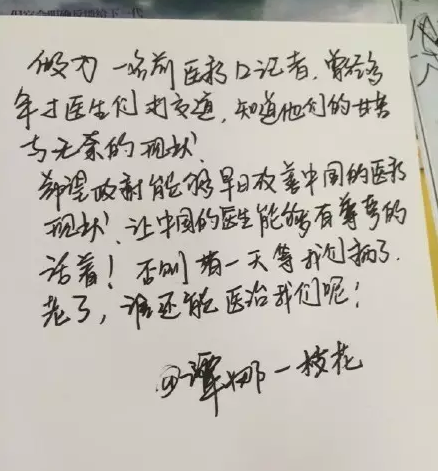 做为一名前医疗口记者,曾经多
年于医生们打交道,知道他们的甘苦
与无奈的现状.
希望政府能够早日改善中国的医疗
现状、让中国的医生能够有尊等的
活着!否则有一天等我们病了.
老了,谁还能医治我们呢!
@谭娜一枝花